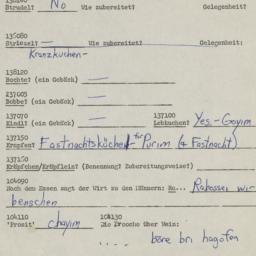 Strudel? No Wie zubereitet? Gelegenheit?
135080
Streusel? — Wie zubereitet? Gelegenheit:
Kranzkuchen-
138120
Bochte? (ein Gebäck) —
237005
Bobbe? (ein Gebäck) —
137070 137100
Kindl? (ein Gebäck) — Lebkuchen? Yes - Goyim
137150
Krapfen? Fastnachtsküchel- für Purim (+ Fastnacht)
137160
Kräpfchen/Kräpflein? (Benennung? Zubereitungsweise?)
104090
Nach dem Essen sagt der Wirt zu den Männern: Ra... Rabossei wir
benschen
104110 104130
'Prosit' chayim Die Broche über Wein:
.... bore bri hagofen